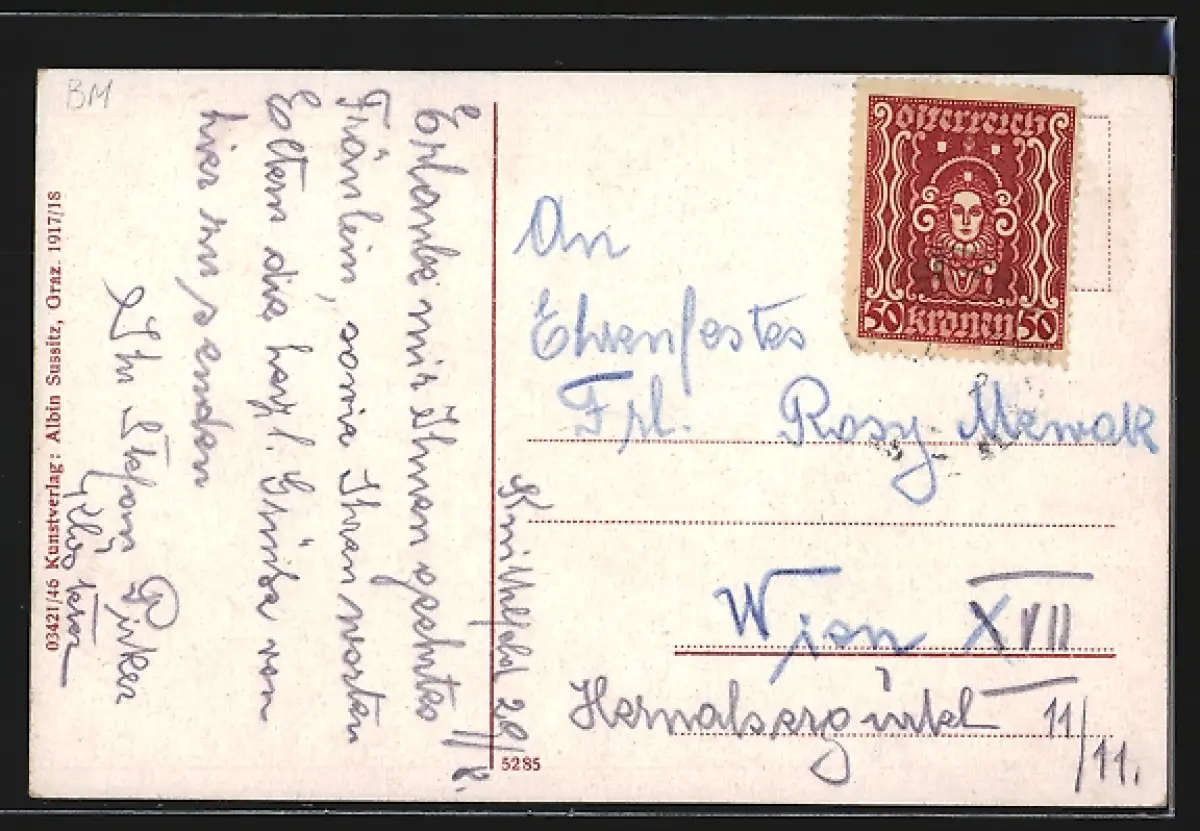 BM
03421/46 Kunstverlag: Albin Sussitz, Graz. 1917/18
Knittelfeld 29/
Erlaube mir Ihnen geehrtes
Fräulein, sowie Ihren werten
Eltern die herzl. Grüße von
hier zu senden
Ihr Stefan Pirker
5285
Österreich
50 Kronen 50
An
Ehrenfestes
Frl. Rosy
Wien XVII
Hernalsergürtel 11/11.